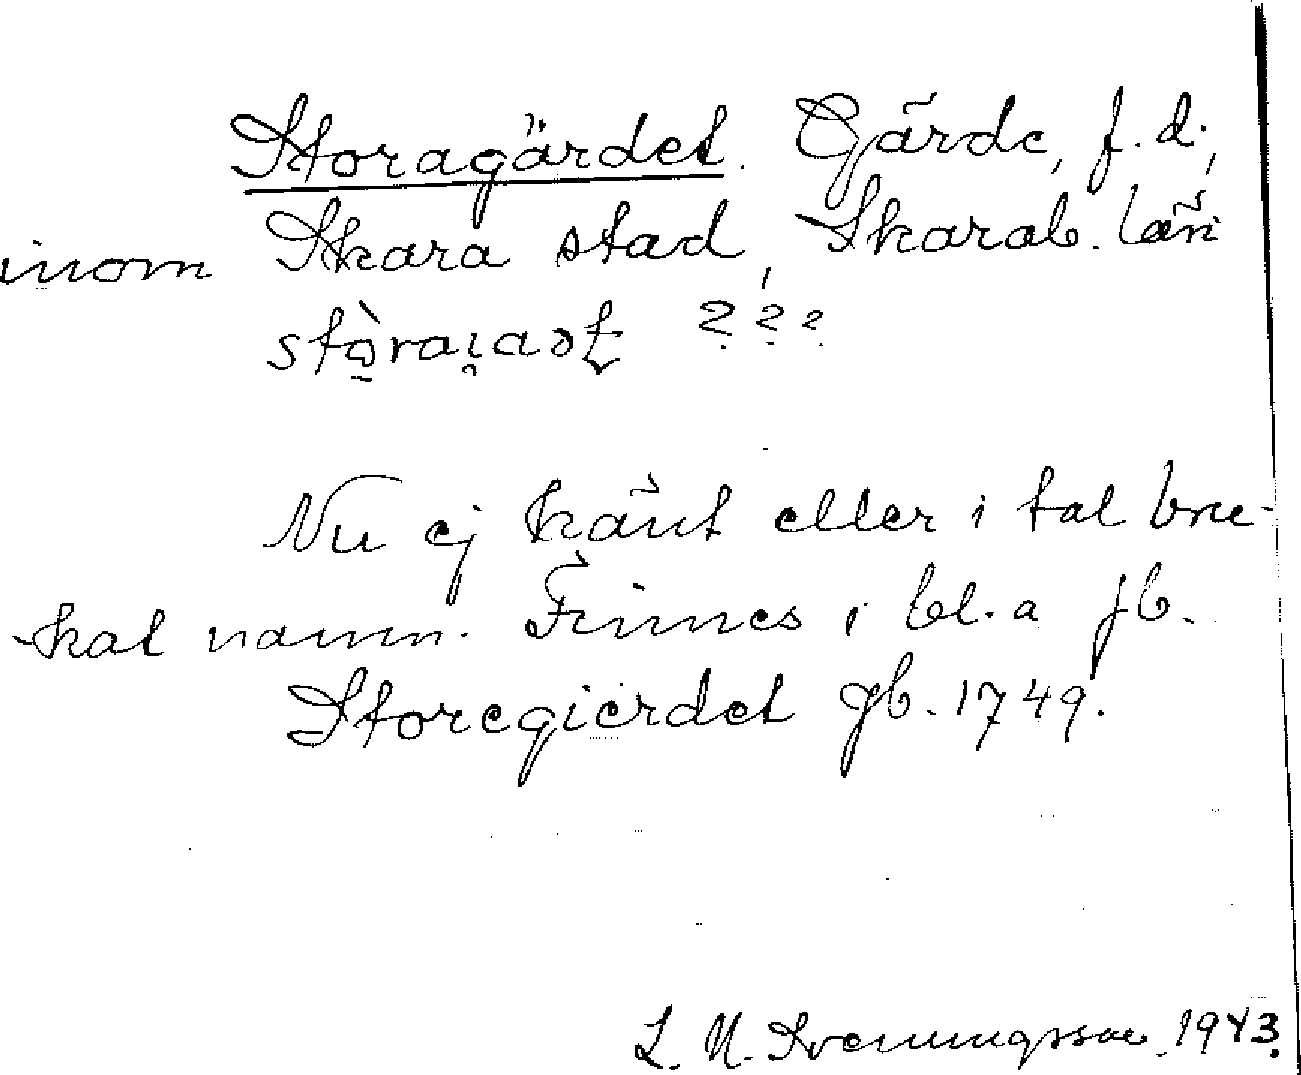 Storagärdet. Gärde, f.d.,
inom Skara stad, Skarab. län
???
Nu ej känt eller i tal bru-
kat namn. Finnes i bl.a jb.
Storegierdet jb. 1749.
L. N. Svenungsson. 1943.